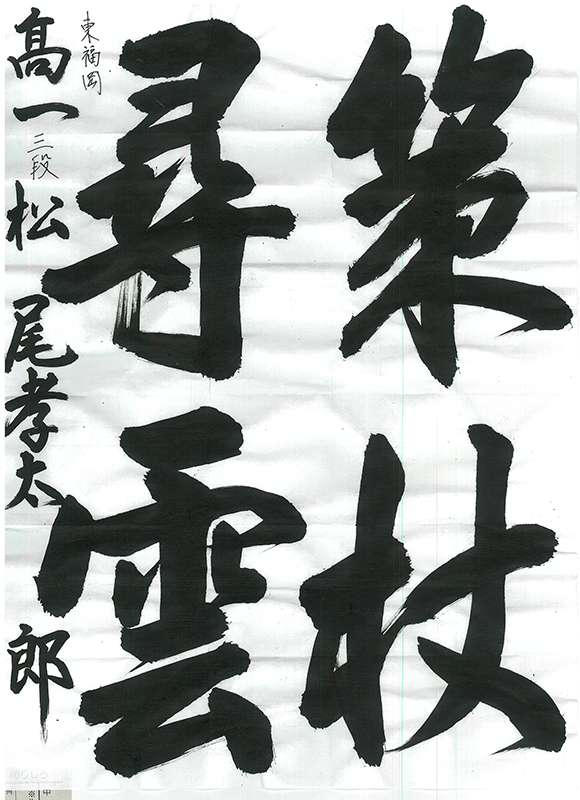 策杖
尋雲
東福岡
髙一 三段 松尾孝太郎